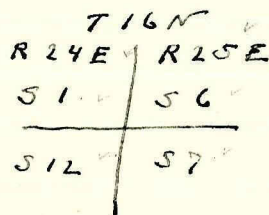 T 16 N
R 24 E R 25 E
S 1 S 6
S 12 S 7